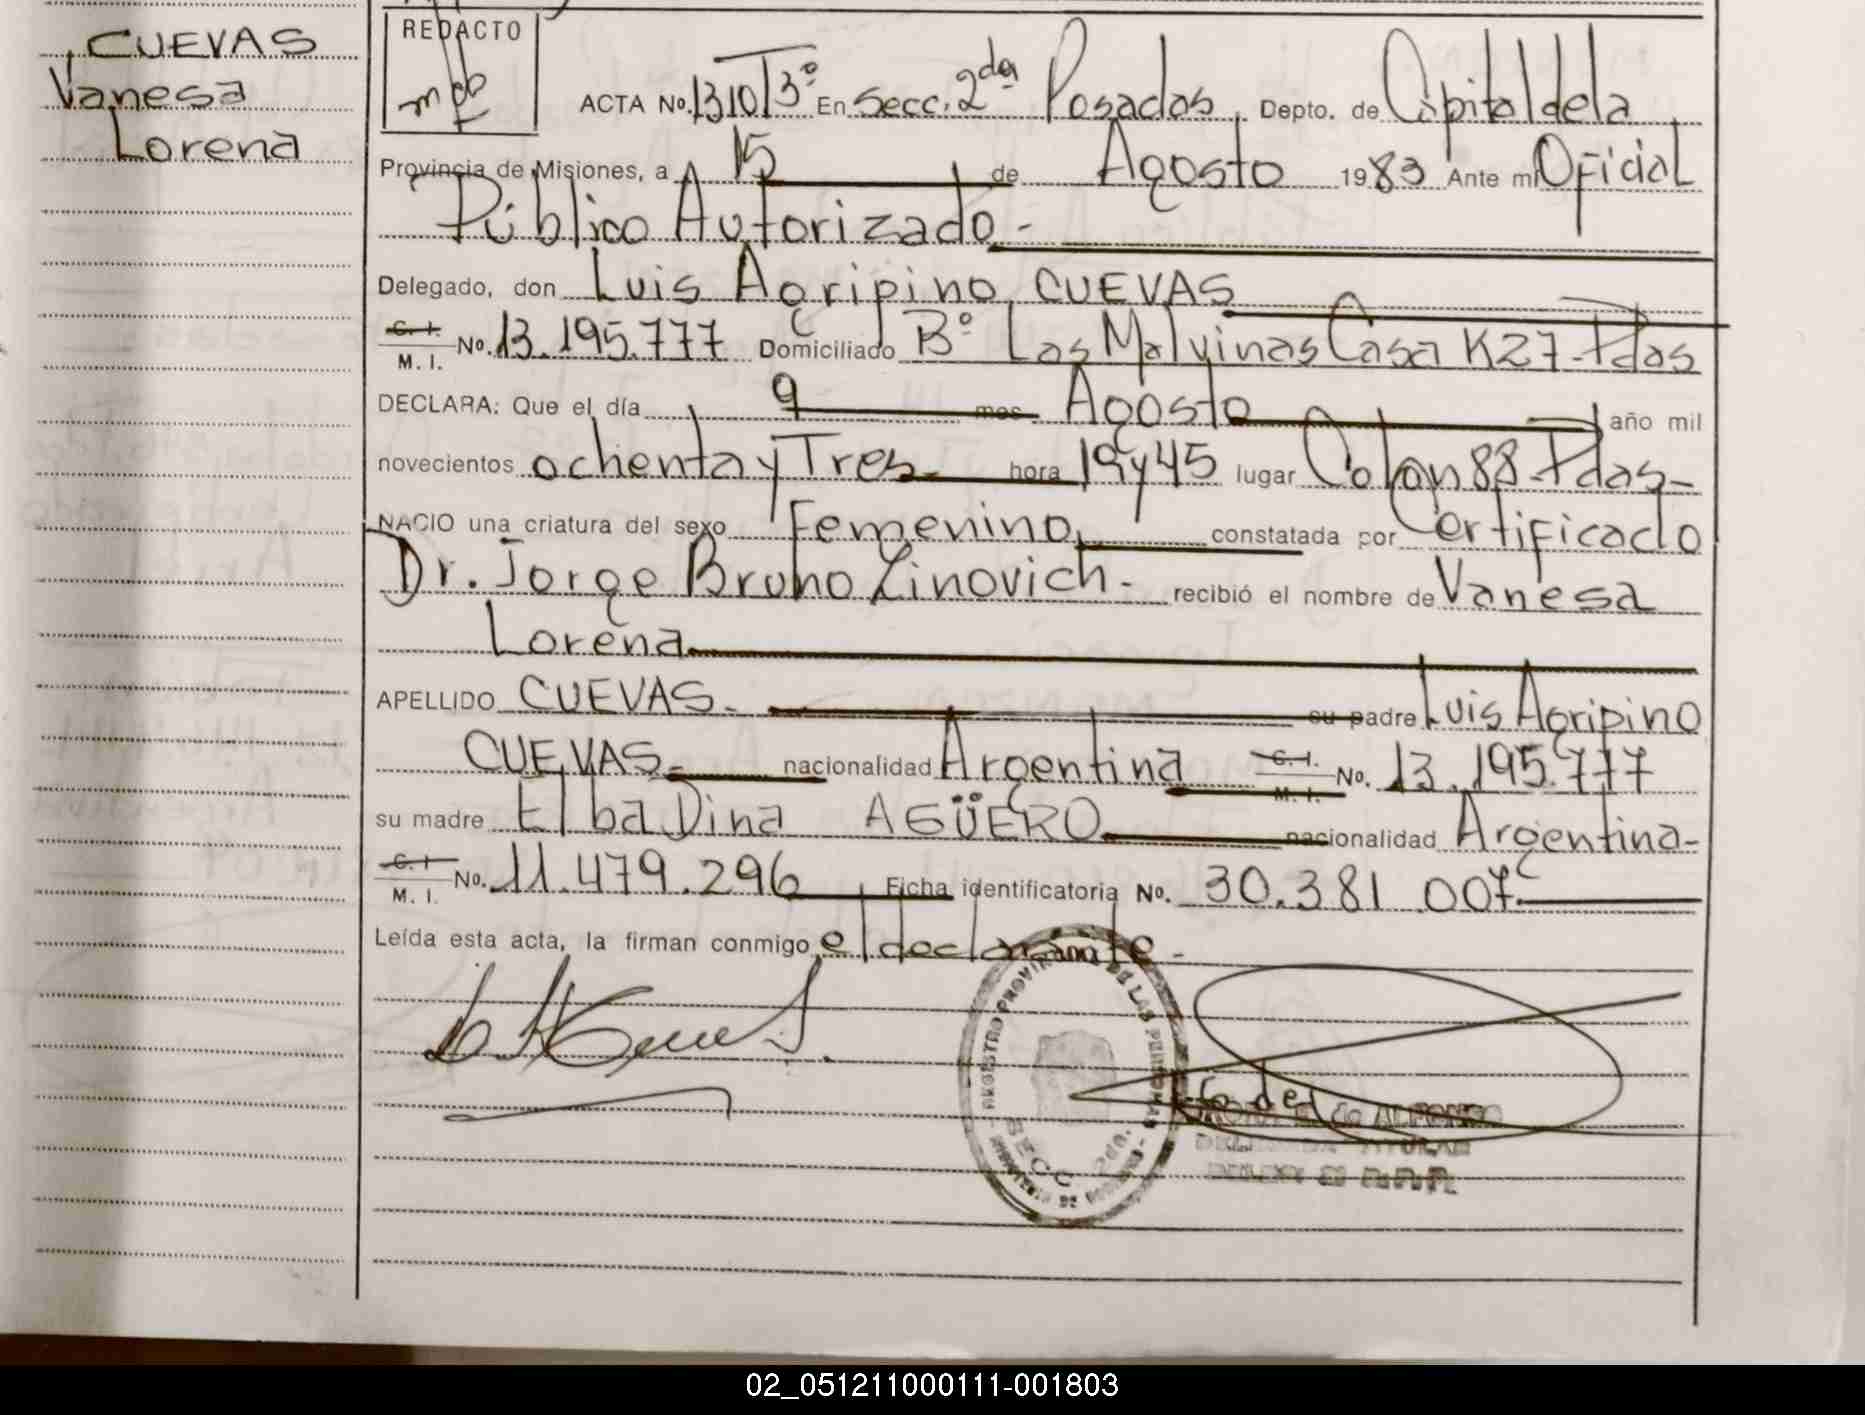 CUEVAS
Vanesa
Lorena
REDACTO
ACTA No. 1310 T 3º En Secc. 2da Posadas, Depto. de Capital de la
Provincia de Misiones, a 15 de Agosto 1983 Ante mi Oficial
Público Autorizado -
Delegado, don Luis Agripino CUEVAS
C. I. M. I. No. 13.195.777 Domiciliado Bº Las Malvinas Casa K27-Pdas
DECLARA: Que el día 9 mes Agosto año mil
novecientos ochenta y Tres hora 19 y 45 lugar Colon 88-Pdas-
NACIO una criatura del sexo Femenino, constatada por Certificado
Dr. Jorge Bruno Linovich - recibió el nombre de Vanesa
Lorena
APELLIDO CUEVAS - su padre Luis Agripino
CUEVAS - nacionalidad Argentina C. I. M. I. No. 13.195.777
su madre Elba Dina AGÜERO nacionalidad Argentina-
C. I. M. I. No. 11.479.296 Ficha identificatoria No. 30.381.007
Leída esta acta, la firman conmigo el declarante -
DE LAS PERSONAS
SECC 2da.
de ALFONSO
02_051211000111-001803